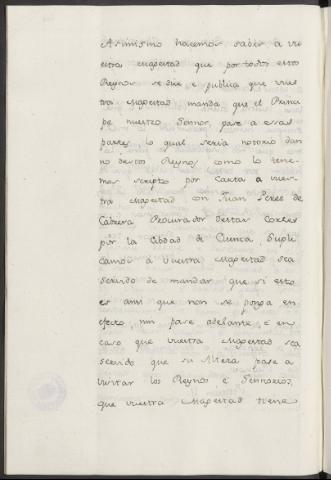 Asimismo hacemos saber a vu
estra Magestad que por todos estos
Reynos se dice e publica que vues
tra Magestad manda que el Princi
pe nuestro Sennor, pase a esas
partes, lo qual seria notorio dan
no destos Reynos como lo tene
mos scripto por Carta a vues
tra Magestad con Juan Peres de
Cabrera Procurador destas Cortes
por la Cibdad de Cuenca, Supli
camos a vuestra Magestad sea
servido de mandar que si esto
es ansi que non se ponga en
efecto, nin pase adelante, e en
caso que vuestra Magestad sea
servido que su Alteza pase a
visitar los Reynos, e Sennorios,
que vuestra Magestad tiene